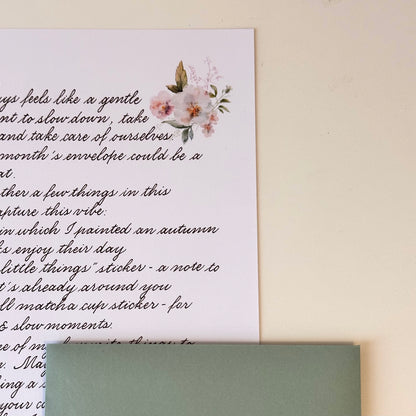 ys feels like a gentle
nt to slow down, take
and take care of ourselves.
month's envelope could be a
at.
ther a few things in this
apture this vibe:
in which I painted an autumn
ks enjoy their day
little things" sticker - a note to
t's already around you
ll matcha cup sticker - for
& slow moments.
e of my favourite things to
. Ma
ing a s
your c